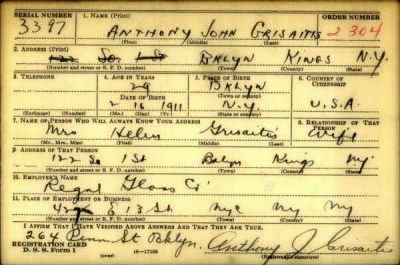 SERIAL NUMBER 1. NAME (Print) ORDER NUMBER
3397 ANTHONY JOHN GRISAITIS 2304
(First) (Middle) (Last)
2. ADDRESS (Print)
122 So. 1 St BKLYN KINGS N.Y.
(Number and street or R. F. D. number) (Town) (County) (State)
3. TELEPHONE 4. AGE IN YEARS 5. PLACE OF BIRTH 6. COUNTRY OF CITIZENSHIP
29 BKLYN
DATE OF BIRTH (Town or county)
2 16 1911 N.Y. U.S.A.
(Exchange) (Number) (Mo.) (Day) (Yr.) (State or country)
7. NAME OF PERSON WHO WILL ALWAYS KNOW YOUR ADDRESS 8. RELATIONSHIP OF THAT PERSON
Mrs Helen Grisaitis Wife
(Mr., Mrs., Miss) (First) (Middle) (Last)
9. ADDRESS OF THAT PERSON
122 So 1 St Bklyn Kings NY
(Number and street or R. F. D. number) (Town) (County) (State)
10. EMPLOYER'S NAME
Regal Glass Co
11. PLACE OF EMPLOYMENT OR BUSINESS
E 13 St NYC NY NY
(Number and street or R. F. D. number) (Town) (County) (State)
I AFFIRM THAT I HAVE VERIFIED ABOVE ANSWERS AND THAT THEY ARE TRUE.
264 Penn St Bklyn. Anthony J Grisaitis
REGISTRATION CARD
D. S. S. Form 1 (over) (Registrant's signature)